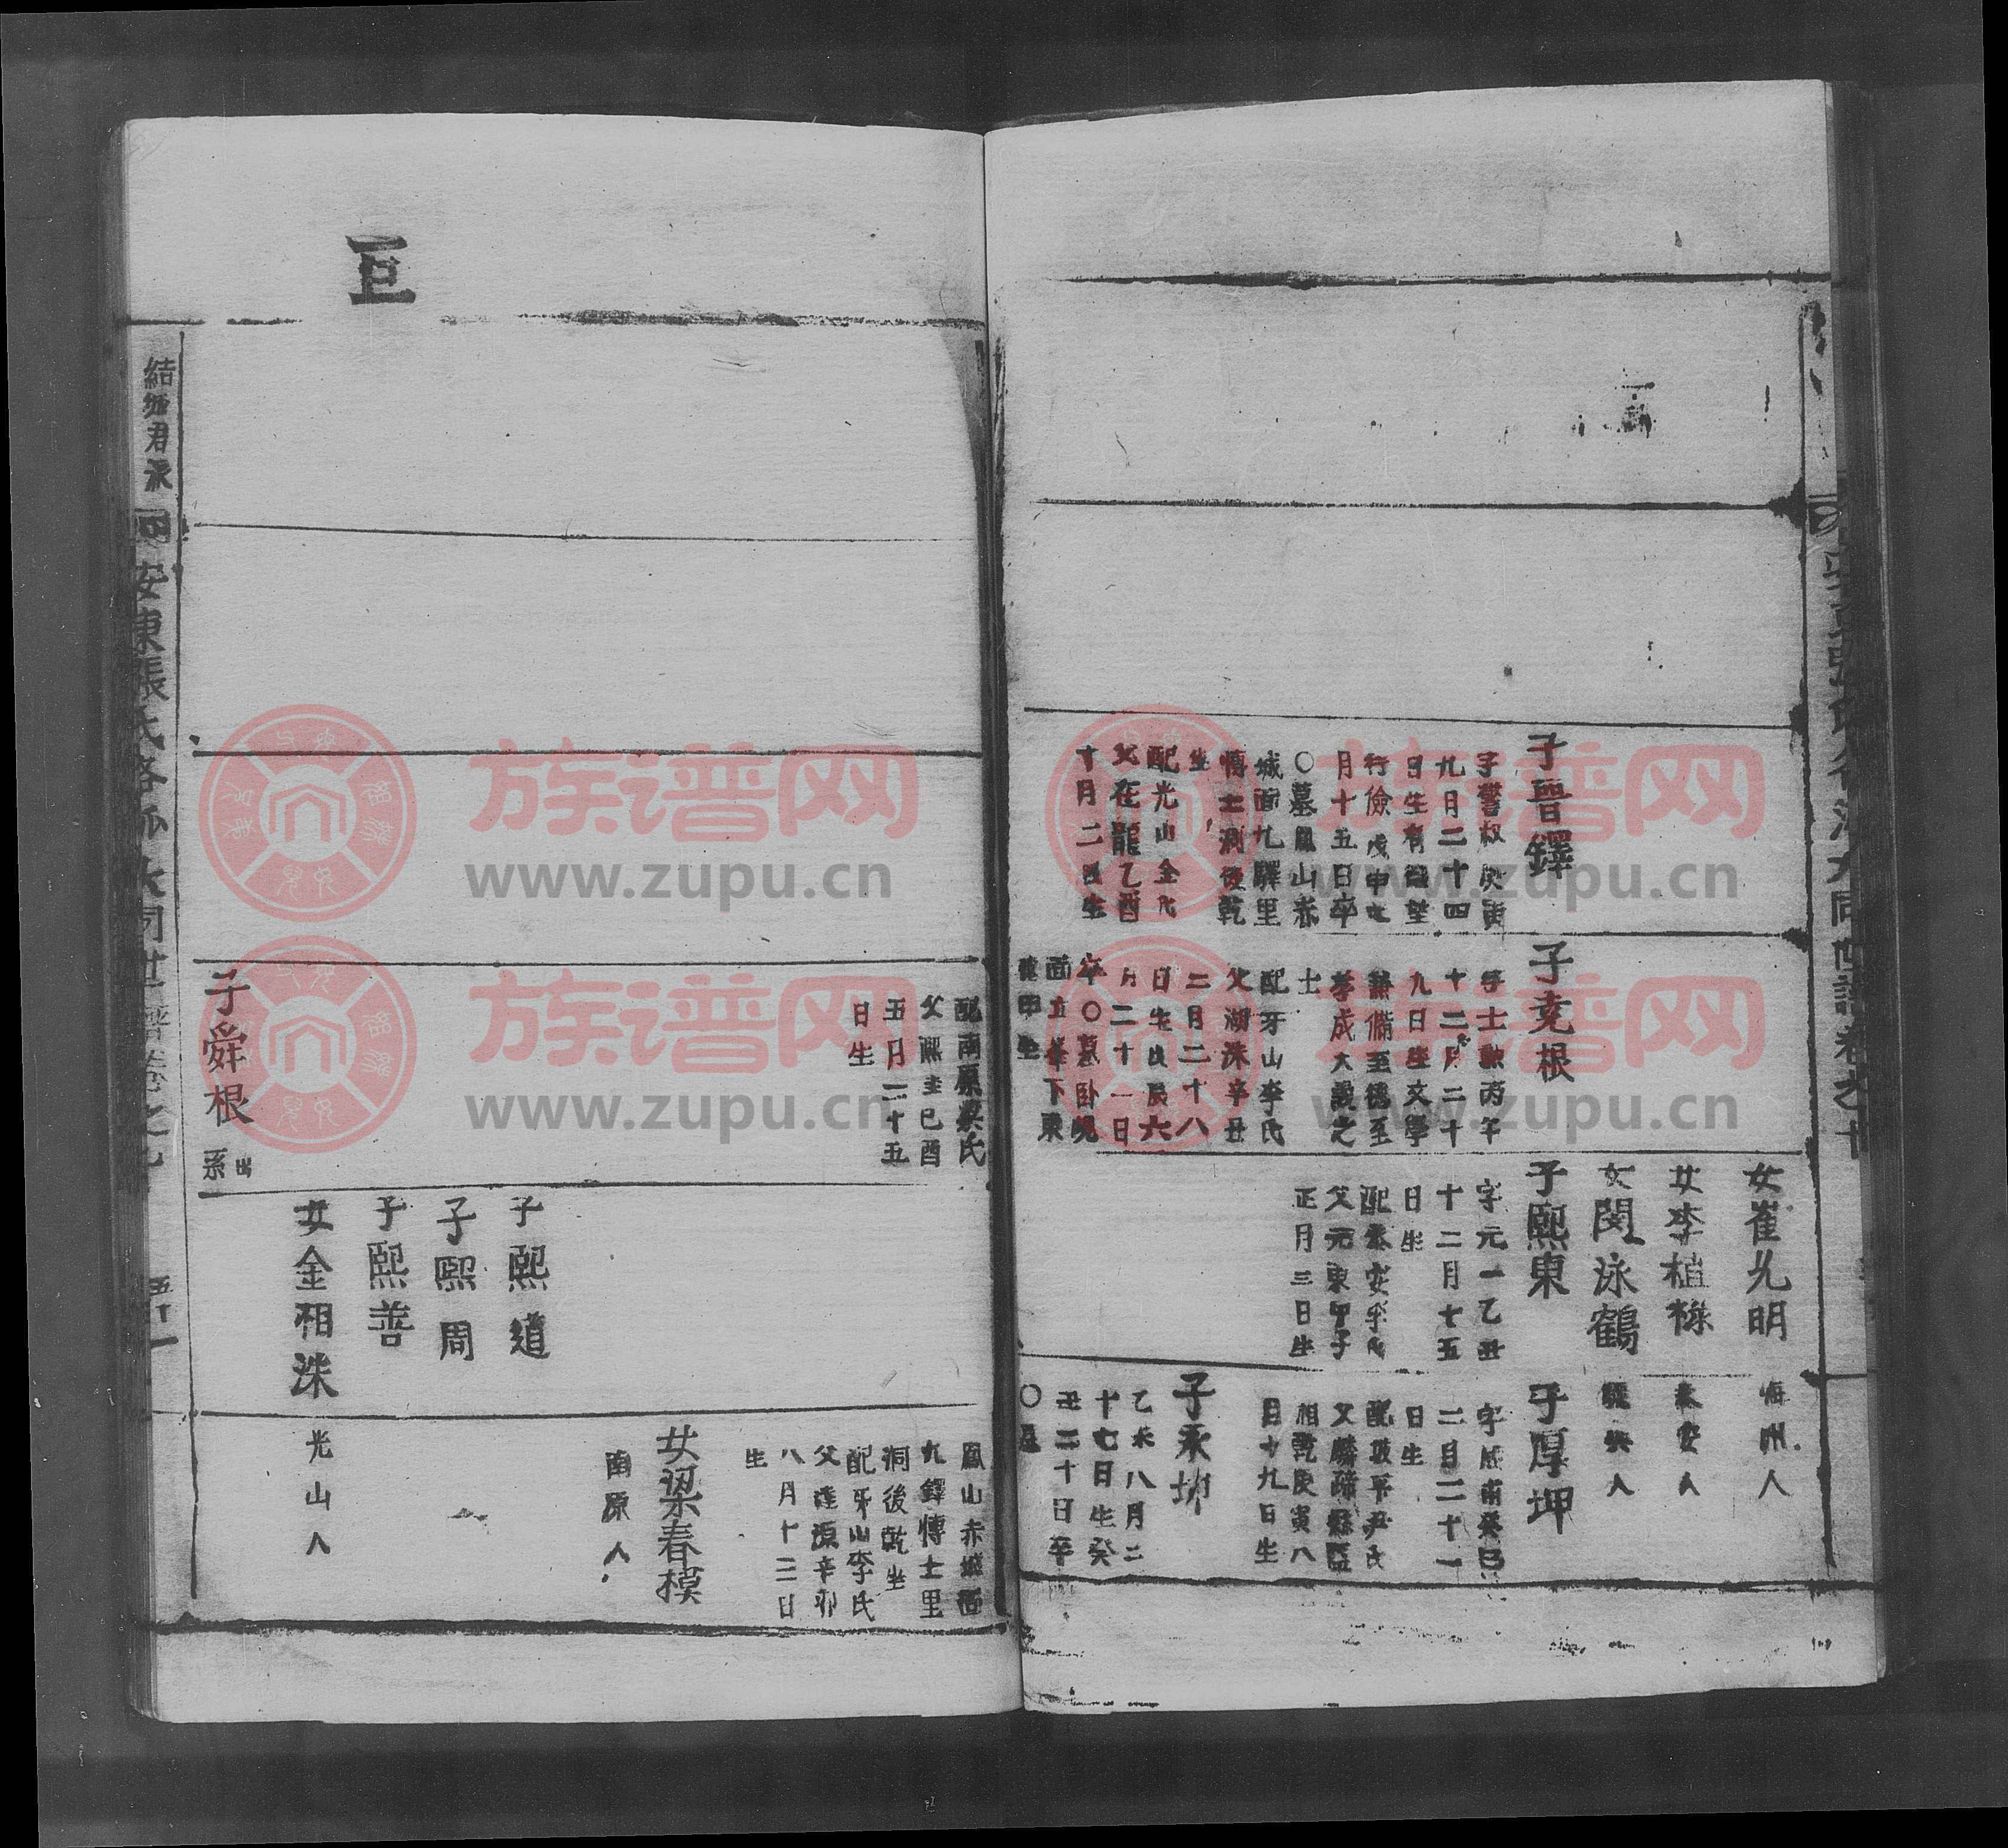 子晉鐸
字警叔庚寅
九月二十四
日生有德望
行儉戊申七
月十五日卒
○墓鳳山赤
城面九驛里
博士洞後乾
坐
配光山金氏
父在龍乙酉
十月二日生
子堯根
字士欽丙午
十二月二十
九日生文學
兼備至德至
孝成大觀之
士
配牙山李氏
父湖洙辛丑
二月二十八
日生戊辰六
月二十一日
卒○墓卧峴
面五峯下東
女崔光明
女李植祿
女閔泳鶴
子熙東
字元一乙丑
十二月七五
日生
父元東甲子
正月三日生
海州人
泰安人
驪興人
子厚坤
二月二十一
日生
配坡平尹氏
相乾庚寅八
月十九日生
子永坤
乙未八月二
十七日生癸
丑二十日卒
○墓
配南原梁氏
父熙圭己酉
五月二十五
日生
子舜根
出
系
子熙道
子熙周
子熙善
女金相洙
鳳山赤城面
九鐸博士里
洞後乾坐
配牙山李氏
父達源辛卯
八月十二日
生
女梁春模
南原人
光山人
結城君派
安東張氏
五十一
族谱网
www.zupu.cn
族谱网
www.zupu.cn
族谱网
www.zupu.cn
族谱网
www.zupu.cn